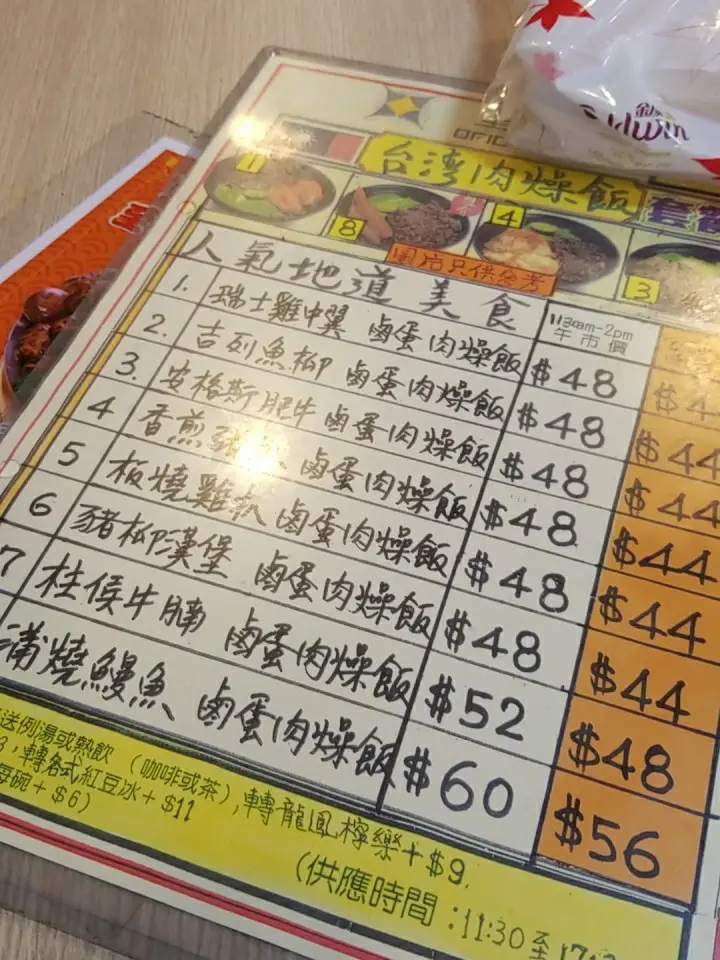 金
Edwin
台湾肉燥飯 套餐
8
4
3
圖片只供參考
人氣地道美食
11:30am-2pm
午市價
1. 瑞士雞中翼 鹵蛋肉燥飯 $48
2. 吉列魚柳 鹵蛋肉燥飯 $48 $44
3. 安格斯肥牛 鹵蛋肉燥飯 $48 $44
4 香煎豬 鹵蛋肉燥飯 $48 $44
5 板燒雞扒 鹵蛋肉燥飯 $48 $44
6 豬柳漢堡 鹵蛋肉燥飯 $48 $44
7 柱侯牛腩 鹵蛋肉燥飯 $52 $48
蒲燒鰻魚 鹵蛋肉燥飯 $60 $56
送例湯或熱飲 (咖啡或茶),轉龍鳳檸樂+$9.
3,轉各式紅豆冰+$11
每碗+$6)
(供應時間:11:30至17: